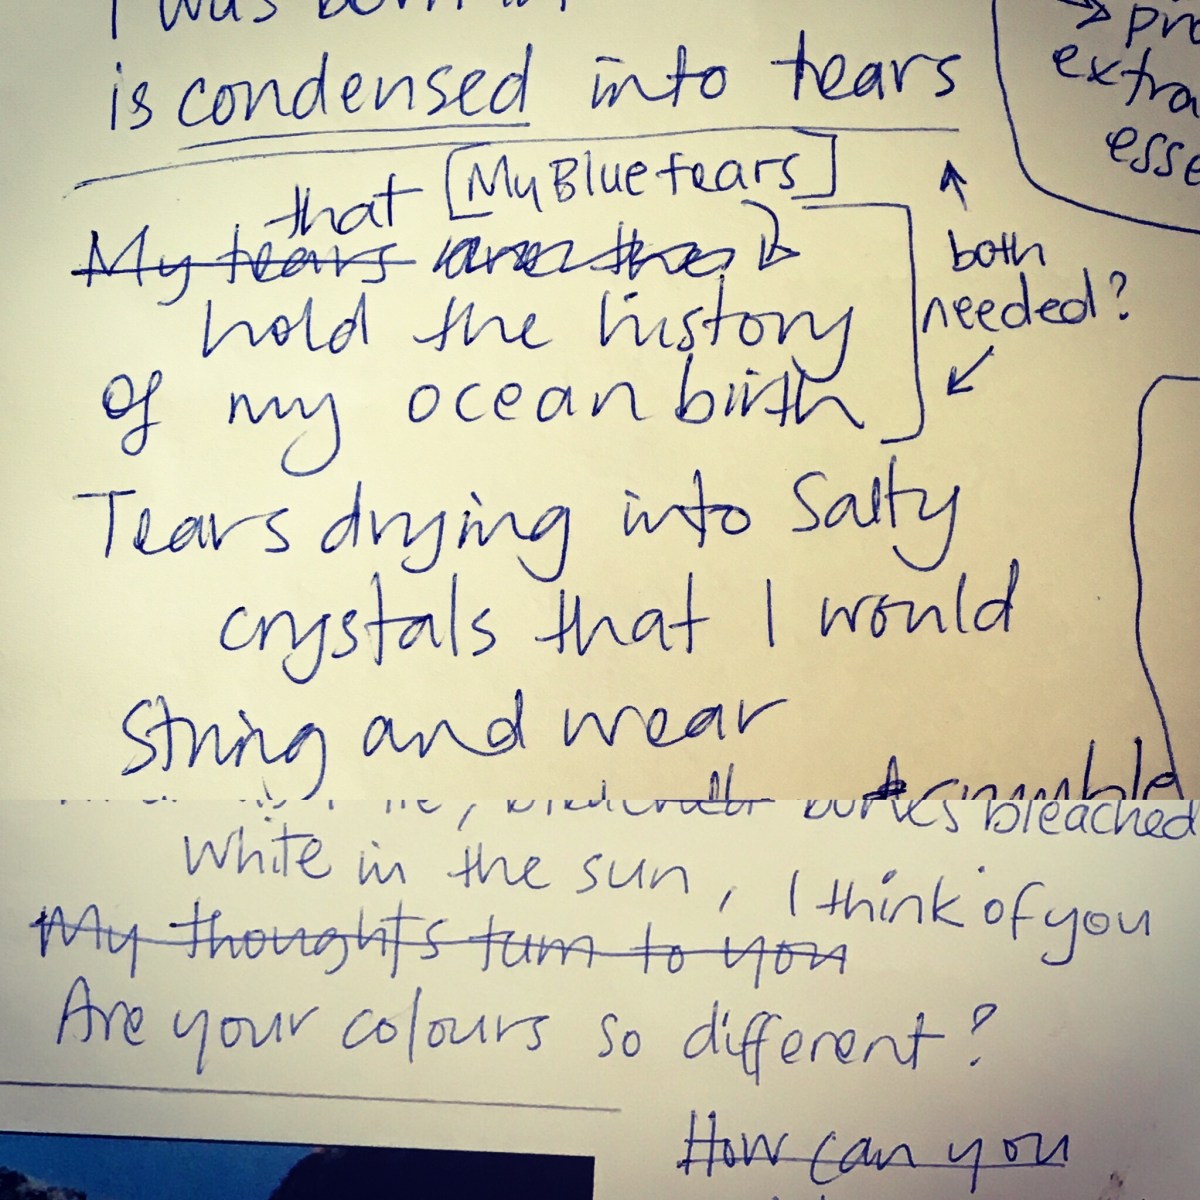 I was born in
is condensed into tears
→ pro
extra
esse
that [My Blue tears]
My tears are the
hold the history
of my ocean birth
both
needed?
Tears drying into salty
crystals that I would
string and wear
crumble
bleached
white in the sun, I think of you
My thoughts turn to you
Are your colours so different?
How can you